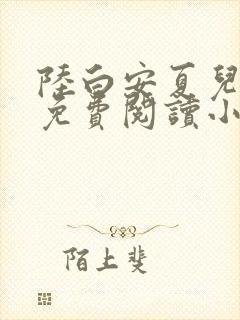 陸白安夏兒
免費閱讀小
陌上斐